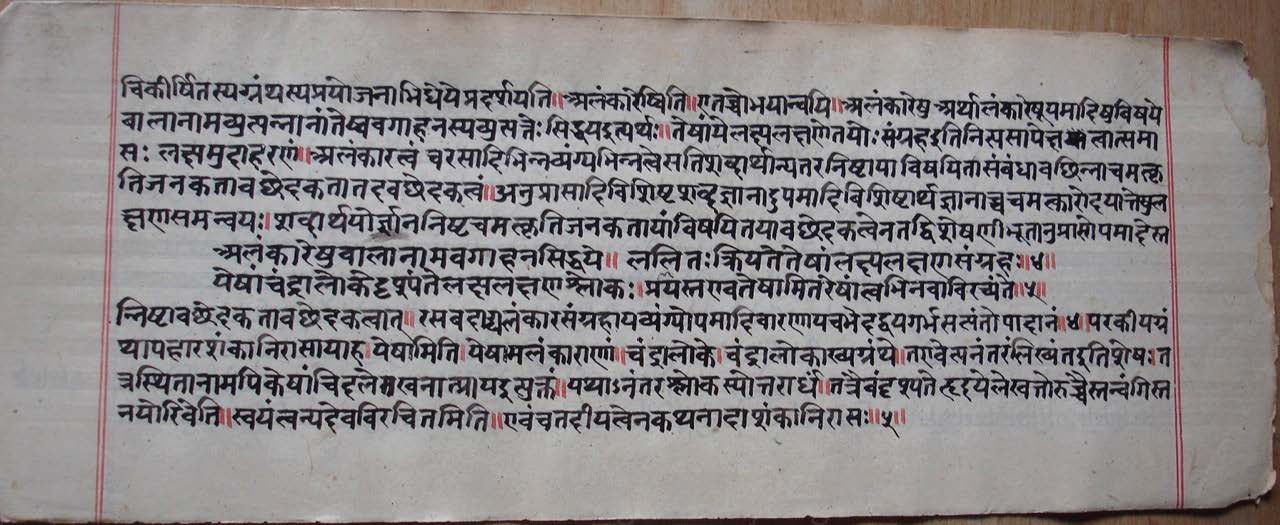 चिकीर्षितस्यग्रंथस्यप्रयोजनाभिधेयेप्रदर्शयति॥अलंकारेष्विति॥एतच्चोभयान्वयि॥अलंकारेषुअर्थालंकारेषूपमादिषुविषये
बालानामव्युत्पन्नानांतेष्ववगाहनस्यव्युत्पत्तेःसिद्ध्यइत्यर्थः॥तेषांयेलक्ष्यलक्षणेतयोःसंग्रहइतिनित्यसापेक्षत्वात्समा
सः लक्ष्यमुदाहरणं॥अलंकारत्वं चरसादिभिन्नव्यंग्यभिन्नत्वेसतिशब्दार्थान्यतरनिष्ठायाविषयितासंबंधावछिन्नाचमत्कृ
तिजनकतावछेदकतातदवछेदकत्वं॥अनुप्रासादिविशिष्टशब्दज्ञानादुपमादिविशिष्टार्थज्ञानाच्चचमत्कारोदयात्तेषुल
क्षणसमन्वयः॥शब्दार्थयोर्ज्ञाननिष्टचमत्कृतिजनकतायांविषयितयावछेदकत्वेनतद्विशेषणीभूतानुप्रासोपमादेस्त
अलंकारेषुबालानामवगाहनसिद्धये॥ ललितःक्रियतेतेषांलक्ष्यलक्षणसंग्रहः॥४॥
येषांचंद्रालोकेदृश्यंतेलक्ष्यलक्षणश्लोकाः॥प्रायस्तएवतेषामितरेषांत्वभिनवाविरच्यंते॥५॥
न्निष्टावछेदकतावछेदकत्वात्॥रसवदाद्यलंकारसंग्रहायव्यंग्योपमादिवारणायचभेदद्वयगर्भसत्यंतोपादानं॥४॥परकीयग्रं
थापहारशंकानिरासायाह॥येषामिति॥येषामलंकाराणां॥चंद्रालोके॥चंद्रालोकाख्यग्रंथे॥तएवेत्यनंतरंलिख्यंतइतिशेषः॥त
त्रस्थितानामपिकेषांचिदलेखनात्प्रायइत्युक्तं॥यथाऽनंतरश्लोकस्योत्तरार्धं॥तत्रैवंदृश्यतेहृदयेलेखत्तोरुच्चैस्तन्वंगिस्त
नयोरिवेति॥स्वयंत्वन्यदेवविरचितमिति॥एवंचतदीयत्वेनकथनादाशंकानिरासः॥५॥